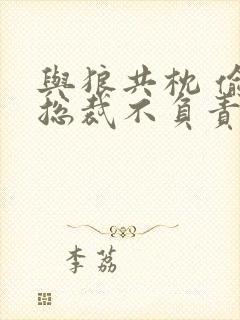 與狼共枕 偷
总裁不負責
李荔